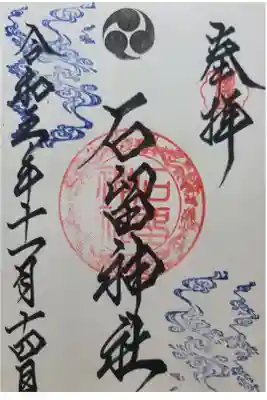 奉拝
石留神社
令和三年十一月十四日